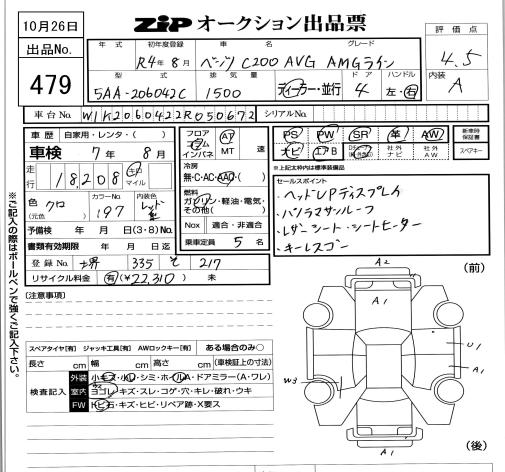 10月26日
ZiP オークション出品票
出品No.
479
年式 初年度登録 車名 グレード
R4年8月 ベンツ C200 AVG AMGライン
型式 排気量 ドア ハンドル
5AA-206042C 1500 ディーラー・並行 4 左・右
評価点
4.5
内装
A
車台No. W1K2060422R050672 シリアルNo.
車歴 自家用・レンタ・( )
車検 7年8月
走行 18,208 キロ マイル
色 クロ (元色) カラーNo. 197 内装色 レッド
予備検 年 月 日(3・8)No.
書類有効期限 年 月 日迄
登録No. 堺 335 そ 217
リサイクル料金 有(¥22,310) 未
フロア コラム インパネ AT MT 速
冷房 無・C・AC・AAC・( )
燃料 ガソリン・軽油・電気・その他( )
Nox 適合・非適合
乗車定員 5名
PS PW SR 革 AW
ナビ エアB 社外ナビ 社外AW
新車時保証書
スペアキー
*上記太枠内は標準装備品
セールスポイント
・ヘッドUPディスプレイ
・パノラマサンルーフ
・レザーシート・シートヒーター
・キーレスゴー
※ご記入の際はボールペンで強くご記入下さい。
(注意事項)
スペアタイヤ[有] ジャッキ工具[有] AWロックキー[有] ある場合のみ○
長さ cm 幅 cm 高さ cm (車検証上の寸法)
検査記入
外装 小キズ・小凹・シミ・ホイルA・ドアミラー(A・ワレ)
室内 ヨゴレ・キズ・スレ・コゲ・穴・キレ・破れ・ウキ
FW トビ石・キズ・ヒビ・リペア跡・X要ス
(前)
A2
A1
U1
A1
W3
A1
(後)